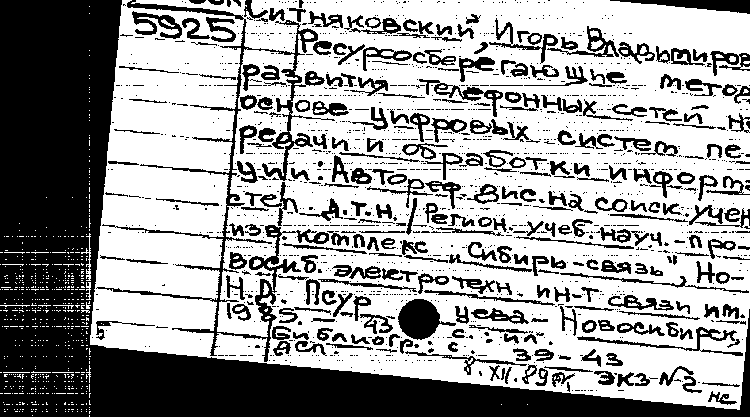 5925
Ситняковский, Игорь Владимиров
Ресурсосберегающие метод
развития телефонных сетей н
основе цифровых систем пе-
редачи и обработки информ
ции: Автореф. дис. на соиск. учен
степ. д.т.н. / Регион. учеб. науч.-про-
изв. комплекс „Сибирь-связь", Но-
восиб. электротехн. ин-т связи им.
Н.Д. Псур цева - Новосибирск,
1989. 43 с.: ил.
Библиогр.: с. 39-43
дсп.
8.XII.89 экз №2
нс
5